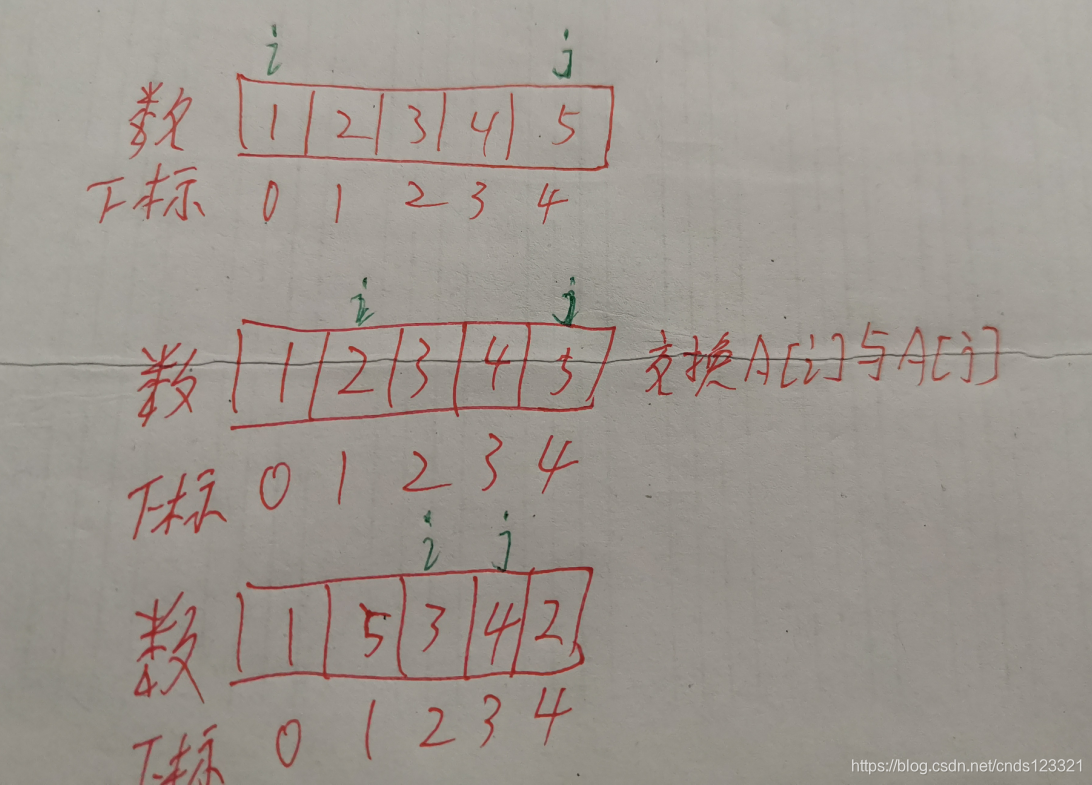 i j
数 1 2 3 4 5
下标 0 1 2 3 4
i j
数 1 2 3 4 5 交换A[i]与A[j]
下标 0 1 2 3 4
i j
数 1 5 3 4 2
下标 0 1 2 3 4
https://blog.csdn.net/cnds123321